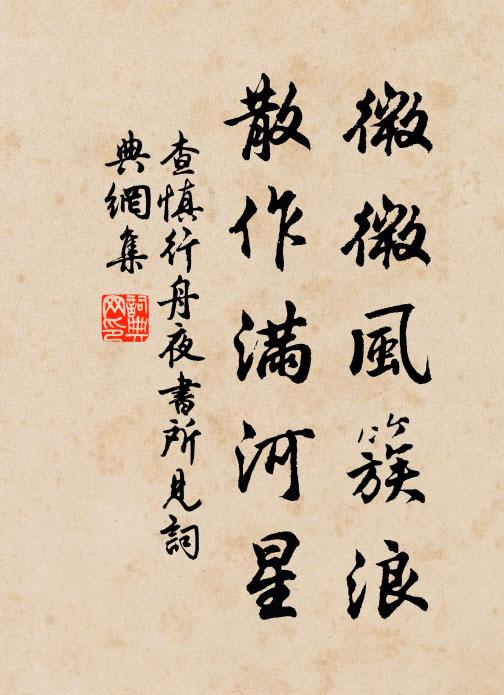 微微風簇浪
散作滿河星
查慎行舟夜書所見詞
典網集
詞典網印